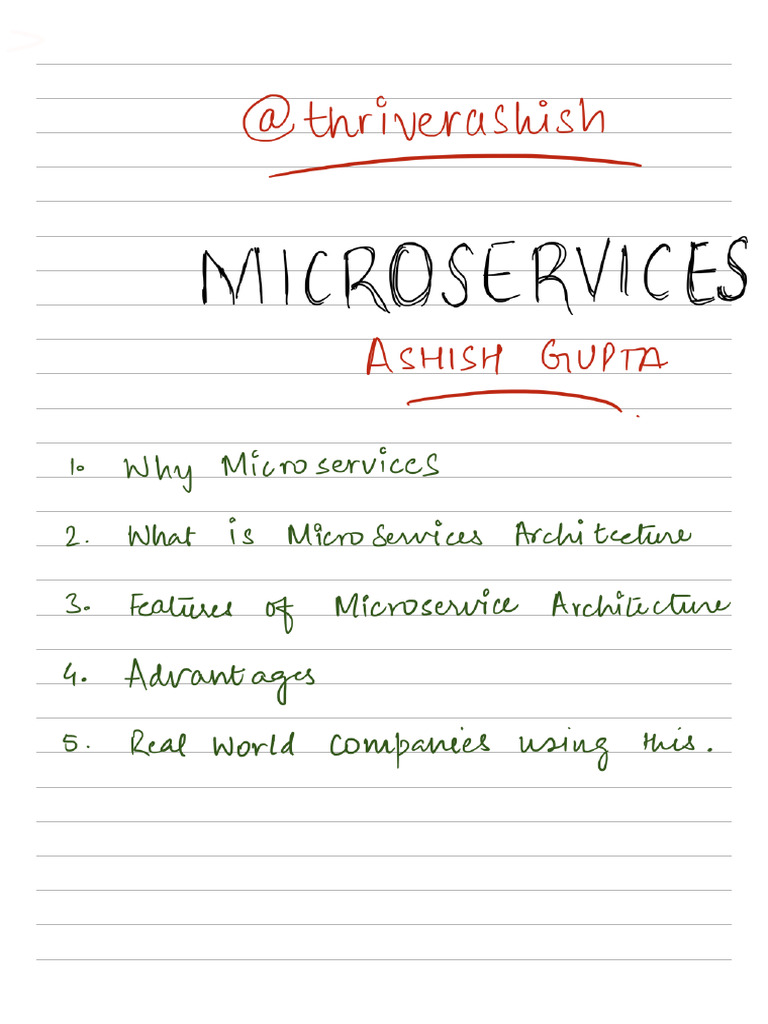 @thriverashish
MICROSERVICES
ASHISH GUPTA
1. Why Microservices
2. What is MicroServices Architecture
3. Features of Microservice Architecture
4. Advantages
5. Real World Companies using this.